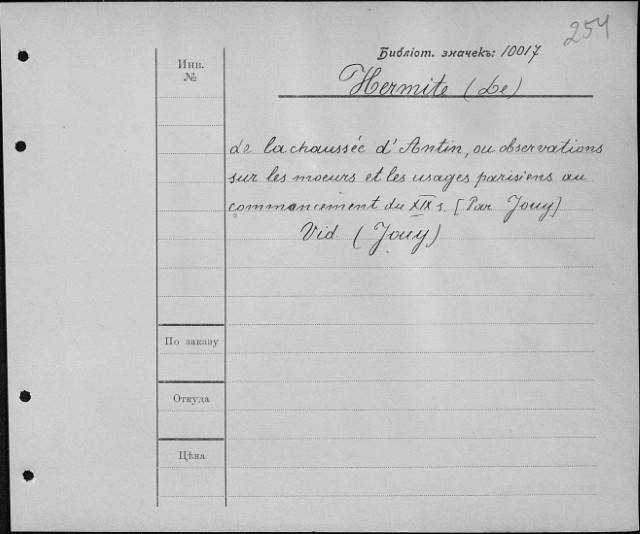 254
Инв.
№
Библіот. значекъ: 10017
Hermite (Le)
de la chaussée d'Antin, ou observations
sur les moeurs et les usages parisiens au
commencement du XIX s. [Par Jouy]
Vid (Jouy)
По заказу
Откуда
Цѣна